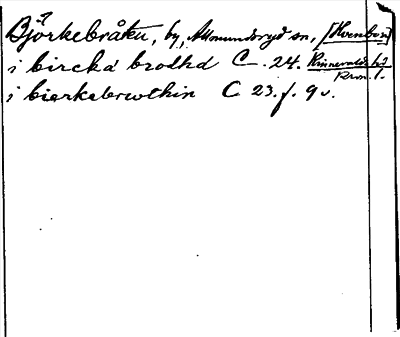 Björkebråten, by, Allmundsryd sn, [Hvenbon]
i bircka brodhd C. 24. Kinnevalds hd
Krm. l.
i bierkebrwthin C 23. f. 9 v.